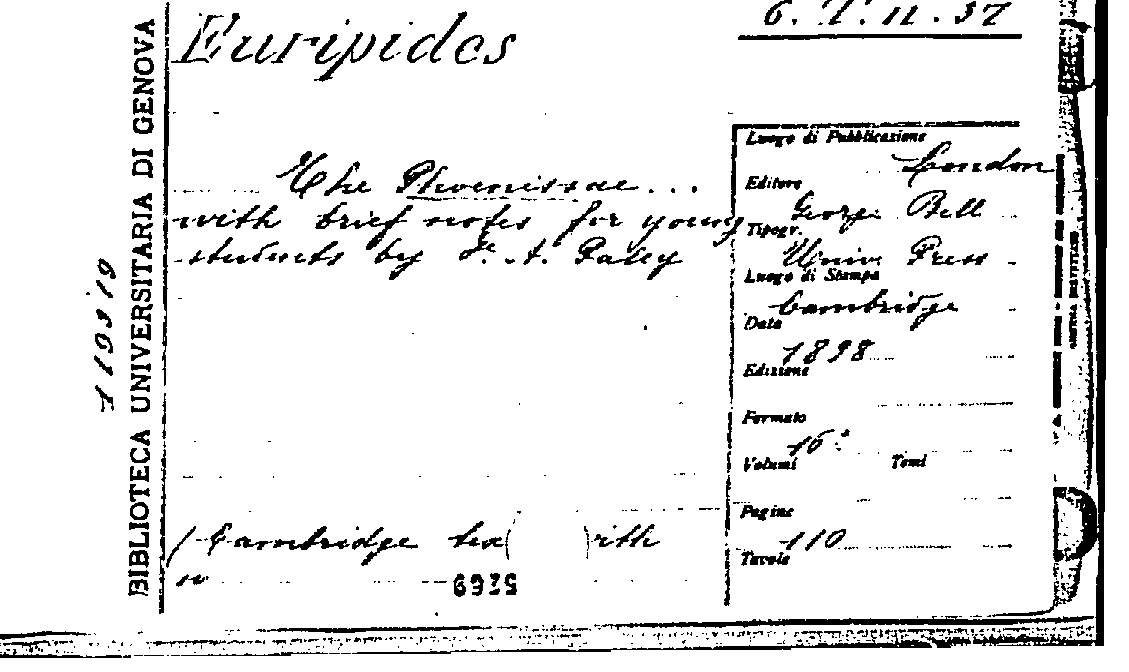 Euripides
6. T. 11. 37
BIBLIOTECA UNIVERSITARIA DI GENOVA
The Phoenissae...
with brief notes for young
students by F. A. Paley
Luogo di Pubblicazione
London
Editore
George Bell
Tipogr.
Univ. Press
Luogo di Stampa
Cambridge
Data
1898
Edizione
Formato
16°
Volumi Tomi
Pagine
110
Tavole
(Cambridge tex( )ith